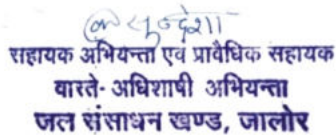 सुन्देशा
सहायक अभियन्ता एवं प्रावैधिक सहायक
वास्ते- अधिशाषी अभियन्ता
जल संसाधन खण्ड, जालोर